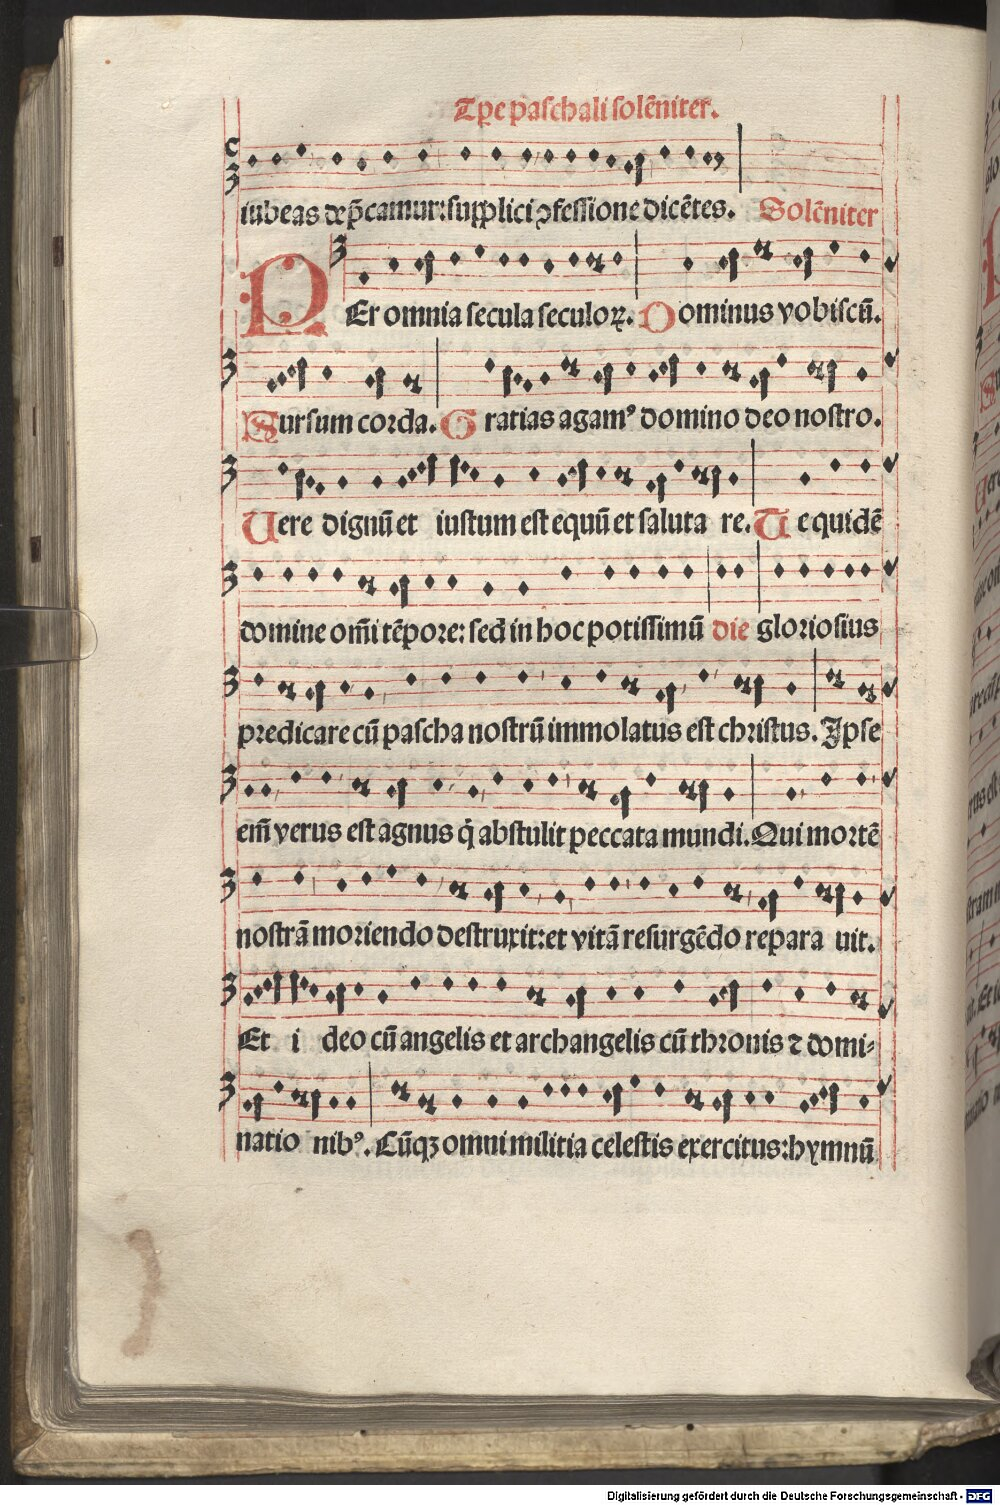 Tp̄e paschali solēniter.
iubeas dep̄camur: supplici ↄfessione dicētes. Solēniter
PEr omnia secula seculoꝝ. Dominus vobiscū.
Sursum corda. Gratias agamꝰ domino deo nostro.
Uere dignū et iustum est equū et saluta re. Te equidē
domine om̄i tēpore: sed in hoc potissimū die gloriosius
predicare cū pascha nostrū immolatus est christus. Ipse
em̄ verus est agnus q̇ abstulit peccata mundi. Qui mortē
nostrā moriendo destruxit: et vitā resurgēdo repara uit.
Et i deo cū angelis et archangelis cū thronis ⁊ domi⸗
natio nibꝰ. Cūqꝫ omni militia celestis exercitus: hymnū
Digitalisierung gefördert durch die Deutsche Forschungsgemeinschaft - DFG